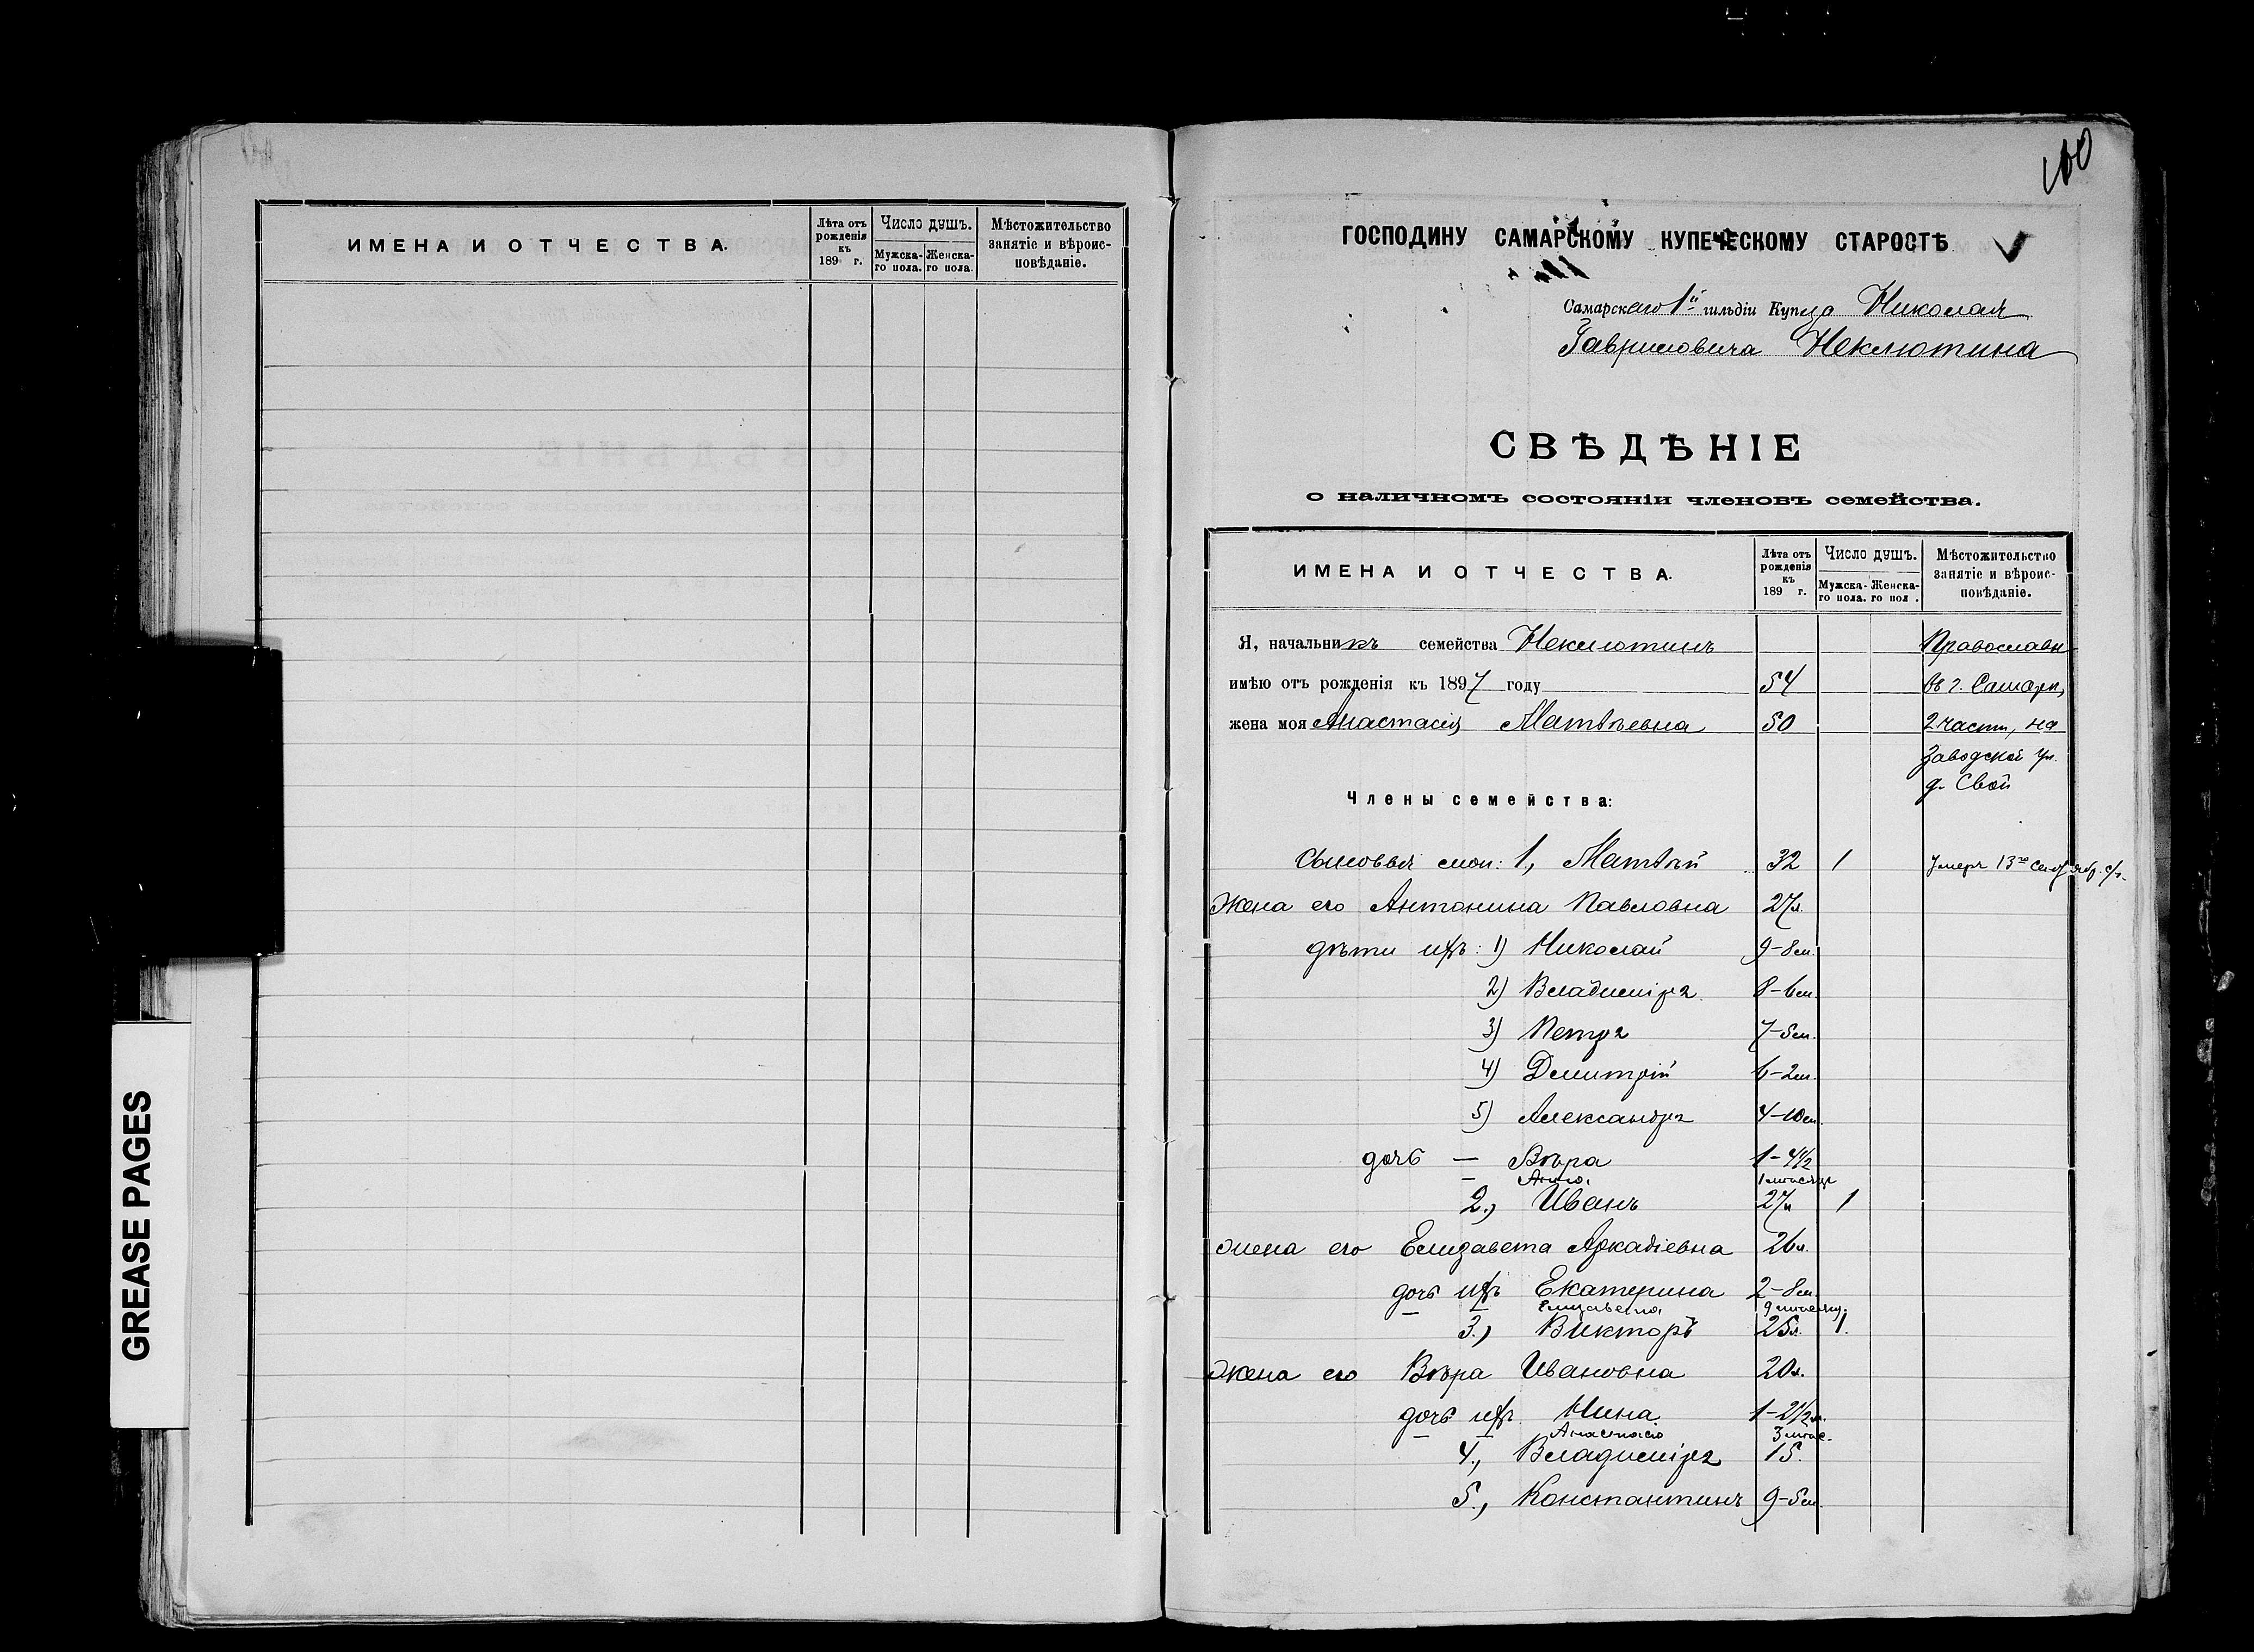 ИМЕНА И ОТЧЕСТВА.
Лѣта отъ рожденія къ 189 г.
Число душъ.
Мужска-го пола.
Женска-го пола.
Мѣстожительство занятіе и вѣроис-повѣданіе.
GREASE PAGES
100
ГОСПОДИНУ САМАРСКОМУ КУПЕЧЕСКОМУ СТАРОСТѢ
Самарскаго 1й гильдіи Купца Николая
Гавриловича Неклютина
СВѢДѢНІЕ
о наличномъ состояніи членовъ семейства.
ИМЕНА И ОТЧЕСТВА.
Лѣта отъ рожденія къ 189 г.
Число душъ.
Мужска-го пола.
Женска-го пол .
Мѣстожительство занятіе и вѣроис-повѣданіе.
Я, начальникъ семейства Неклютинъ Православн
имѣю отъ рожденія къ 1897 году 54 въ г. Самарѣ,
жена моя Анастасія Матвѣевна 50 2 части, на
Заводской ул.
д. Свой
Члены семейства:
Сыновья мои: 1, Матвѣй 32 1 Умеръ 13го
Жена его Антонина Павловна 27л.
дѣти ихъ: 1) Николай 9-8м.
2) Владиміръ 8-6м.
3) Петръ 7-5м.
4) Димитрій 6-2м.
5) Александръ 4-10м.
дочь — Вѣра 1-4 1/2
— Анна 1 мѣсяцъ
2., Иванъ 27л 1
жена его Елизавета Аркадіевна 26л.
дочь ихъ Екатерина 2-8м.
— — Елизавета 9 мѣсяц.
3., Викторъ 25л. 1.
жена его Вѣра Ивановна 20л.
дочь ихъ Нина 1-2 1/2 м.
— — Анастасія 3 мѣс.
4., Владиміръ 15.
5., Константинъ 9-5м.